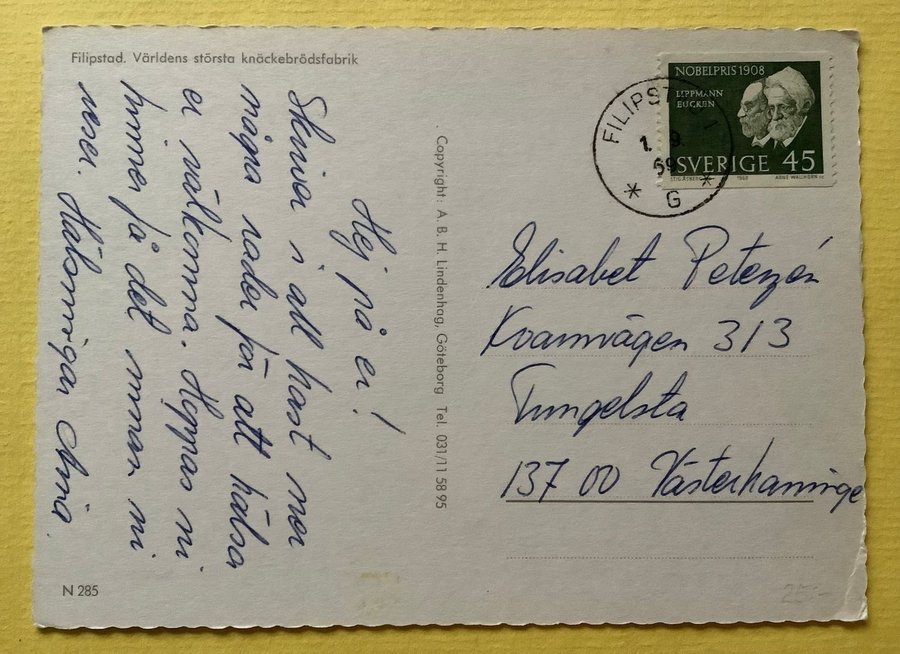 Filipstad. Världens största knäckebrödsfabrik
Hej på er!
Skriva i all hast
några rader för att hälsa
er välkomna. Hoppas ni
hinner få det innan ni
reser. Hälsningar
Copyright: A. B. H. Lindenhag, Göteborg Tel. 031/11 58 95
N 285
NOBELPRIS 1908
LIPPMANN
EUCKEN
SVERIGE 45
1968 ARNE WALLHORN SC
FILIPSTAD 1
1. 9.
69
* G *
Elisabet Petezén
Kvarnvägen 313
Tungelsta
137 00 Västerhaninge
25:-